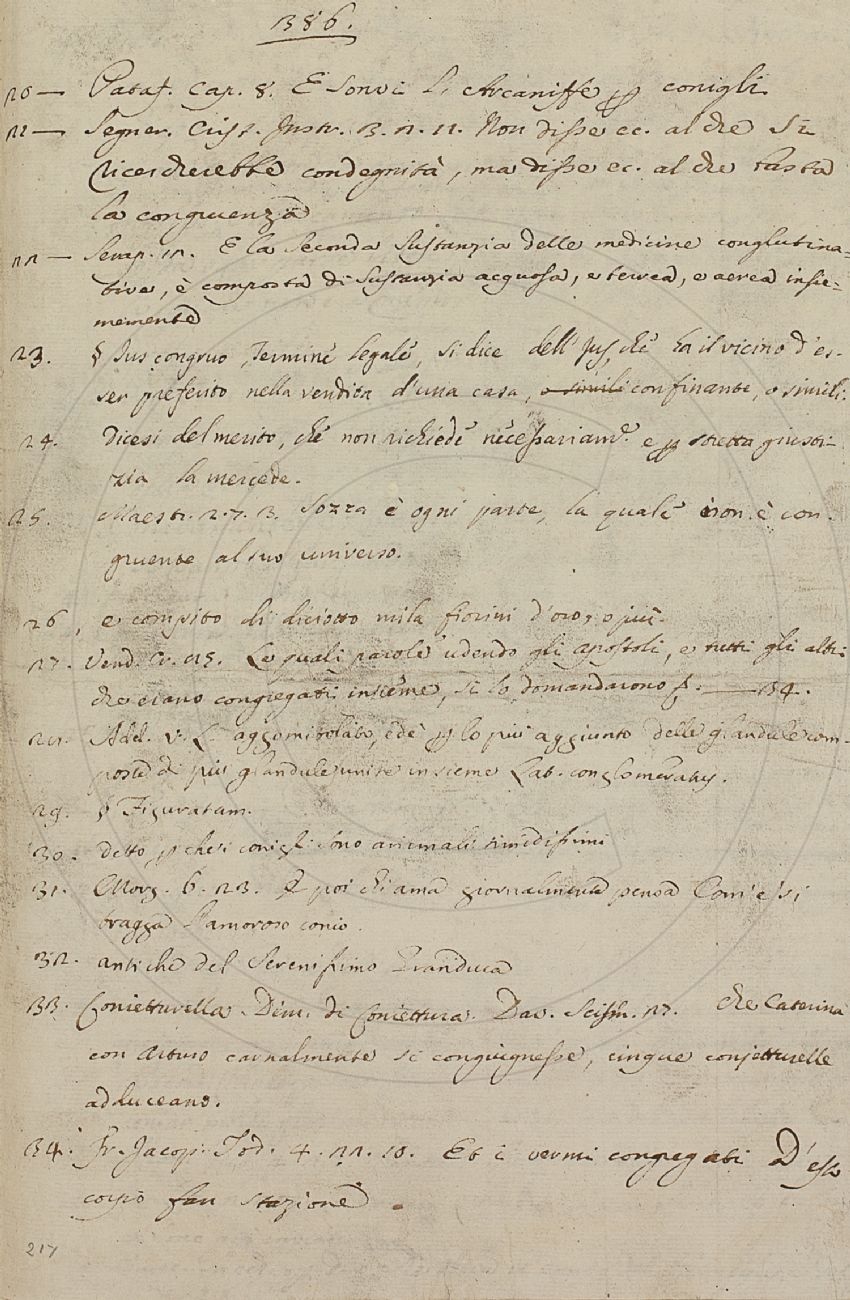 386.
20 — Pataf. Cap. 8. E sonvi li Arcaniffe p conigli
21 — Segner. Crist. Instr. 3. 21. 11. Non disse ec. al che si
ricercherebbe condegnità, ma disse ec. al che basta
la congruenza
22 — Serap. 12. E la seconda sustanzia delle medicine conglutina=
tive, è composta di sustanzia acquosa, e terrea, e aerea insie=
memente
23. § Jus congruo, Termine legale, si dice dell' Jus, che ha il vicino d'es-
ser preferito nella vendita d'una casa, o simili confinante, o simili.
24. Dicesi del merito, che non richiede necessariam.e e p stretta giusti-
zia la mercede.
25. Maestr. 2. 7. 3. Sozza è ogni parte, la quale non è con-
gruente al suo universo.
26, e compito di diciotto mila fiorini d'oro, o più.
27. Vend. Cr. 25. Le quali parole udendo gli apostoli, e tutti gli altri
che erano congregati insieme, si lo domandarono p. — 34.
28. Add. v. L. aggomitolato, ed è p lo più aggiunto delle glandule com-
poste di più glandule unite insieme Lat. conglomeratus.
29. § Figuratam.
30. detto p che i conigli sono animali timidissimi
31. Morg. 6. 23. E poi ch'ama giornalmente pensa Com' e' si
tragga l'amoroso conio.
32. antiche del Serenissimo Granduca
33. Conietturella. Dim. di Coniettura. Dav. Scism. 27. che Caterina
con Arturo carnalmente si congiugnesse, cinque conjetturelle
adduceano.
34. Fr. Jacop. Tod. 4. 22. 10. Et i vermi congregati D'esto
corpo fan stazione.
217